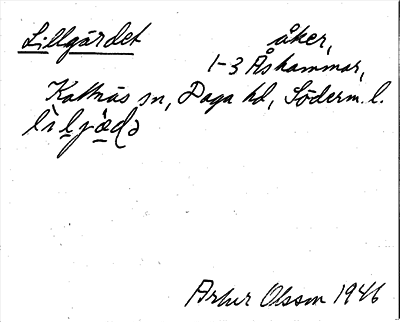 Lillgärdet åker,
1-3 Åshammar,
Kattnäs sn, Daga hd, Söderm. l.
Artur Olsson 1946